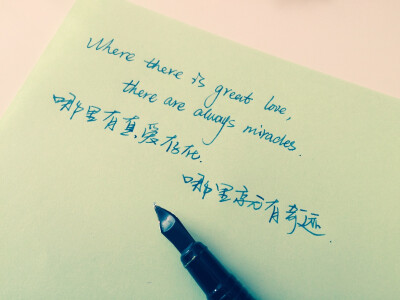 Where there is great love,
there are always miracles.
哪里有真爱存在,
哪里就有奇迹